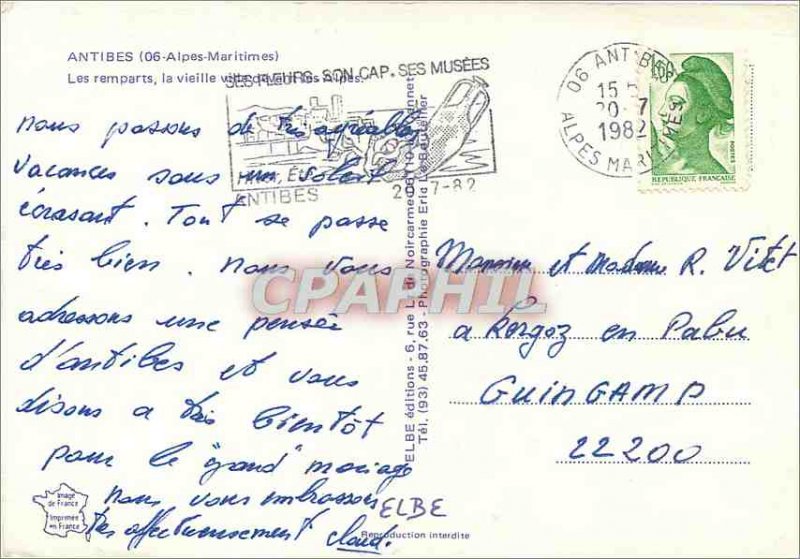 ANTIBES (06-Alpes-Maritimes)
Les remparts, la vieille ville devant les Alpes.
SES FLEURS. SON CAP. SES MUSÉES
ANTIBES
20-7-82
06 ANTIBES
15 H
20-7
1982
ALPES MARITIMES
1,60
POSTES
REPUBLIQUE FRANÇAISE
nous passons de très agréables
vacances sous un soleil
écrasant. Tout se passe
très bien. nous vous
adressons une pensée
d'antibes et vous
disons a très bientôt
pour le "grand" mariage
nous vous embrassons
très affectueusement claud.
ELBE éditions - 6, rue L. de Noircarmes
Tél. (93) 45.87.63 - Photographie Eric
Monsieur et Madame R. Vitet
a Kergoz en Pabu
GUINGAMP
22200
CPAPHIL
ELBE
Image
de France
Imprimée
en France
Reproduction interdite